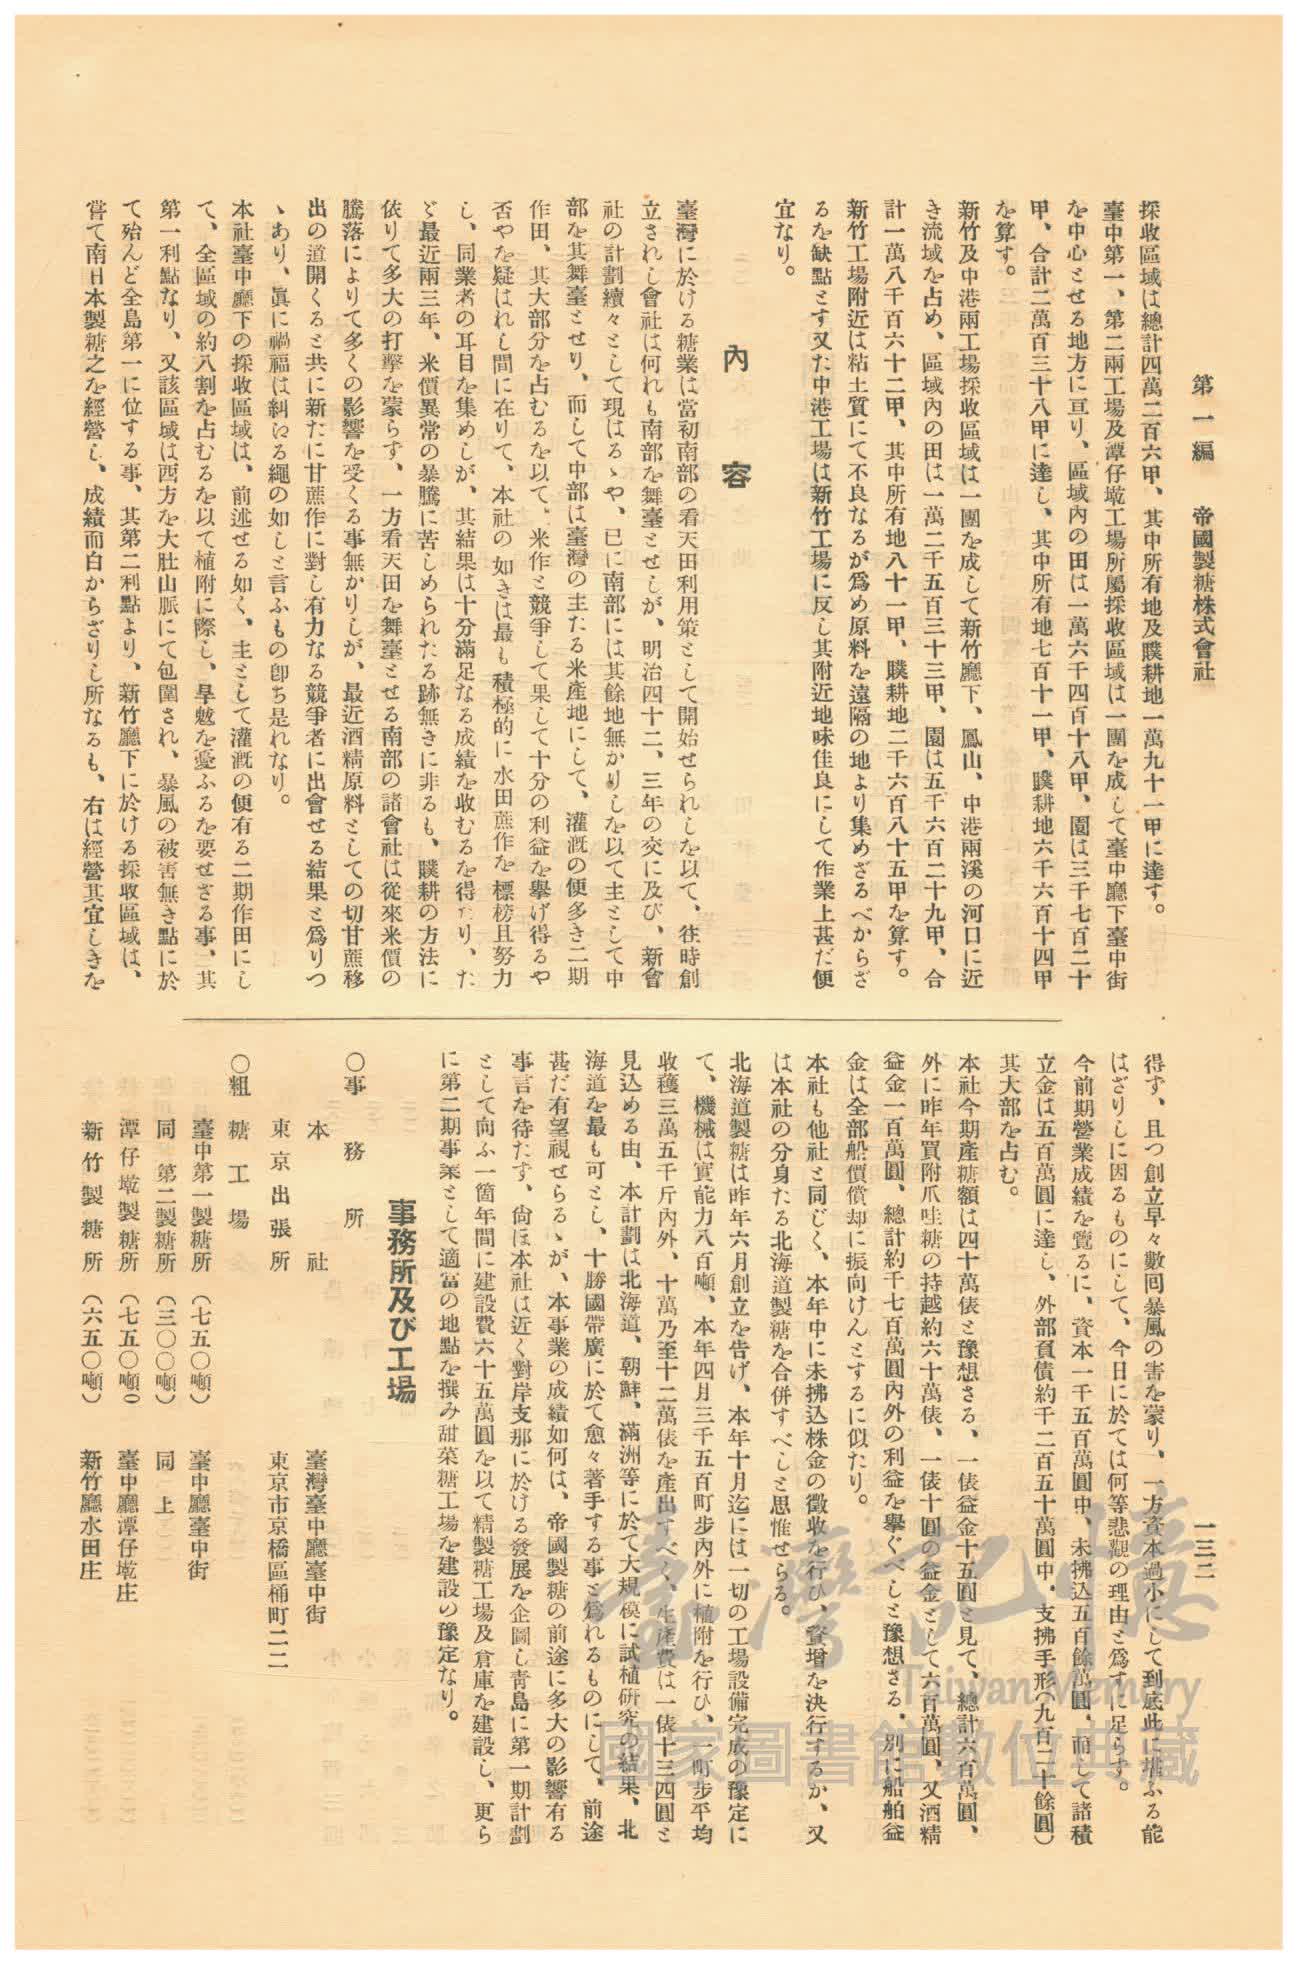 第一編　帝國製糖株式會社
一三二
採收區域は總計四萬二百六甲、其中所有地及贌耕地一萬九十一甲に達す。
臺中第一、第二兩工場及潭仔墘工場所屬採收區域は一團を成して臺中廳下臺中街
を中心とせる地方に亘り、區域內の田は一萬六千四百十八甲、園は三千七百二十
甲、合計二萬百三十八甲に達し、其中所有地七百十一甲、贌耕地六千六百十四甲
を算す。
新竹及中港兩工場採收區域は一團を成して新竹廳下、鳳山、中港兩溪の河口に近
き流域を占め、區域內の田は一萬二千五百三十三甲、園は五千六百二十九甲、合
計一萬八千百六十二甲、其中所有地八十一甲、贌耕地二千六百八十五甲を算す。
新竹工場附近は粘土質にて不良なるが爲め原料を遠隔の地より集めざるべからざ
るを缺點とす又た中港工場は新竹工場に反し其附近地味佳良にして作業上甚だ便
宜なり。
內容
臺灣に於ける糖業は當初南部の看天田利用策として開始せられしを以て、往時創
立されし會社は何れも南部を舞臺とせしが、明治四十二、三年の交に及び、新會
社の計劃續々として現はるゝや、已に南部には其餘地無かりしを以て主として中
部を其舞臺とせり、而して中部は臺灣の主たる米產地にして、灌漑の便多き二期
作田、其大部分を占むるを以て、米作と競爭して果して十分の利益を擧げ得るや
否やを疑はれし間に在りて、本社の如きは最も積極的に水田蔗作を標榜且努力
し、同業者の耳目を集めしが、其結果は十分滿足なる成績を收むるを得たり、た
ゞ最近兩三年、米價異常の暴騰に苦しめられたる跡無きに非るも、贌耕の方法に
依りて多大の打擊を蒙らす、一方看天田を舞臺とせる南部の諸會社は從來米價の
騰落によりて多くの影響を受くる事無かりしが、最近酒精原料としての切甘蔗移
出の道開くると共に新たに甘蔗作に對し有力なる競爭者に出會せる結果と爲りつ
ゝあり、眞に禍福は糾はる繩の如しと言ふもの卽ち是れなり。
本社臺中廳下の採收區域は、前述せる如く、主として灌漑の便有る二期作田にし
て、全區域の約八割を占むるを以て植附に際し、旱魃を憂ふるを要せざる事、其
第一利點なり、又該區域は西方を大肚山脈にて包圍され、暴風の被害無き點に於
て殆んど全島第一に位する事、其第二利點より、新竹廳下に於ける採收區域は、
嘗て南日本製糖之を經營し、成績面白からざりし所なるも、右は經營其宜しきを
得ず、且つ創立早々數回暴風の害を蒙り、一方資本過小にして到底此に堪ふる能
はざりしに因るものにして、今日に於ては何等悲觀の理由と爲すに足らす。
今前期營業成績を覽るに、資本一千五百萬圓中、未拂込五百餘萬圓、而して諸積
立金は五百萬圓に達し、外部負債約千二百五十萬圓中、支拂手形（九百二十餘圓）
其大部を占む。
本社今期產糖額は四十萬俵と豫想さる、一俵益金十五圓と見て、總計六百萬圓、
外に昨年買附爪哇糖の持越約六十萬俵、一俵十圓の益金として六百萬圓、又酒精
益金一百萬圓、總計約千七百萬圓內外の利益を擧ぐべしと豫想さる、別に船舶益
金は全部船價償却に振向けんとするに似たり。
本社も他社と同じく、本年中に未拂込株金の徵收を行ひ、資增を決行するか、又
は本社の分身たる北海道製糖を合併すべしと思惟せらる。
北海道製糖は昨年六月創立を告げ、本年十月迄には一切の工場設備完成の豫定に
て、機械は實能力八百噸、本年四月三千五百町步內外に植附を行ひ、一町步平均
收穫三萬五千斤內外、十萬乃至十二萬俵を產出すべく、生產費は一俵十三四圓と
見込める由、本計劃は北海道、朝鮮、滿洲等に於て大規模に試植研究の結果、北
海道を最も可とし、十勝國帶廣に於て愈々著手する事と爲れるものにして、前途
甚だ有望視せらるゝが、本事業の成績如何は、帝國製糖の前途に多大の影響有る
事言を待たず、尙ほ本社は近く對岸支那に於ける發展を企圖し靑島に第一期計劃
として向ふ一箇年間に建設費六十五萬圓を以て精製糖工場及倉庫を建設し、更ら
に第二期事業として適當の地點を撰み甜菜糖工場を建設の豫定なり。
事務所及び工場
〇事務所
本社　臺灣臺中廳臺中街
東京出張所　東京市京橋區桶町二二
〇粗糖工場
臺中第一製糖所（七五〇噸）　臺中廳臺中街
同　第二製糖所（三〇〇噸）　同上
潭仔墘製糖所（七五〇噸）　臺中廳潭仔墘庄
新竹製糖所（六五〇噸）　新竹廳水田庄
臺灣記憶
Taiwan Memory
國家圖書館數位典藏